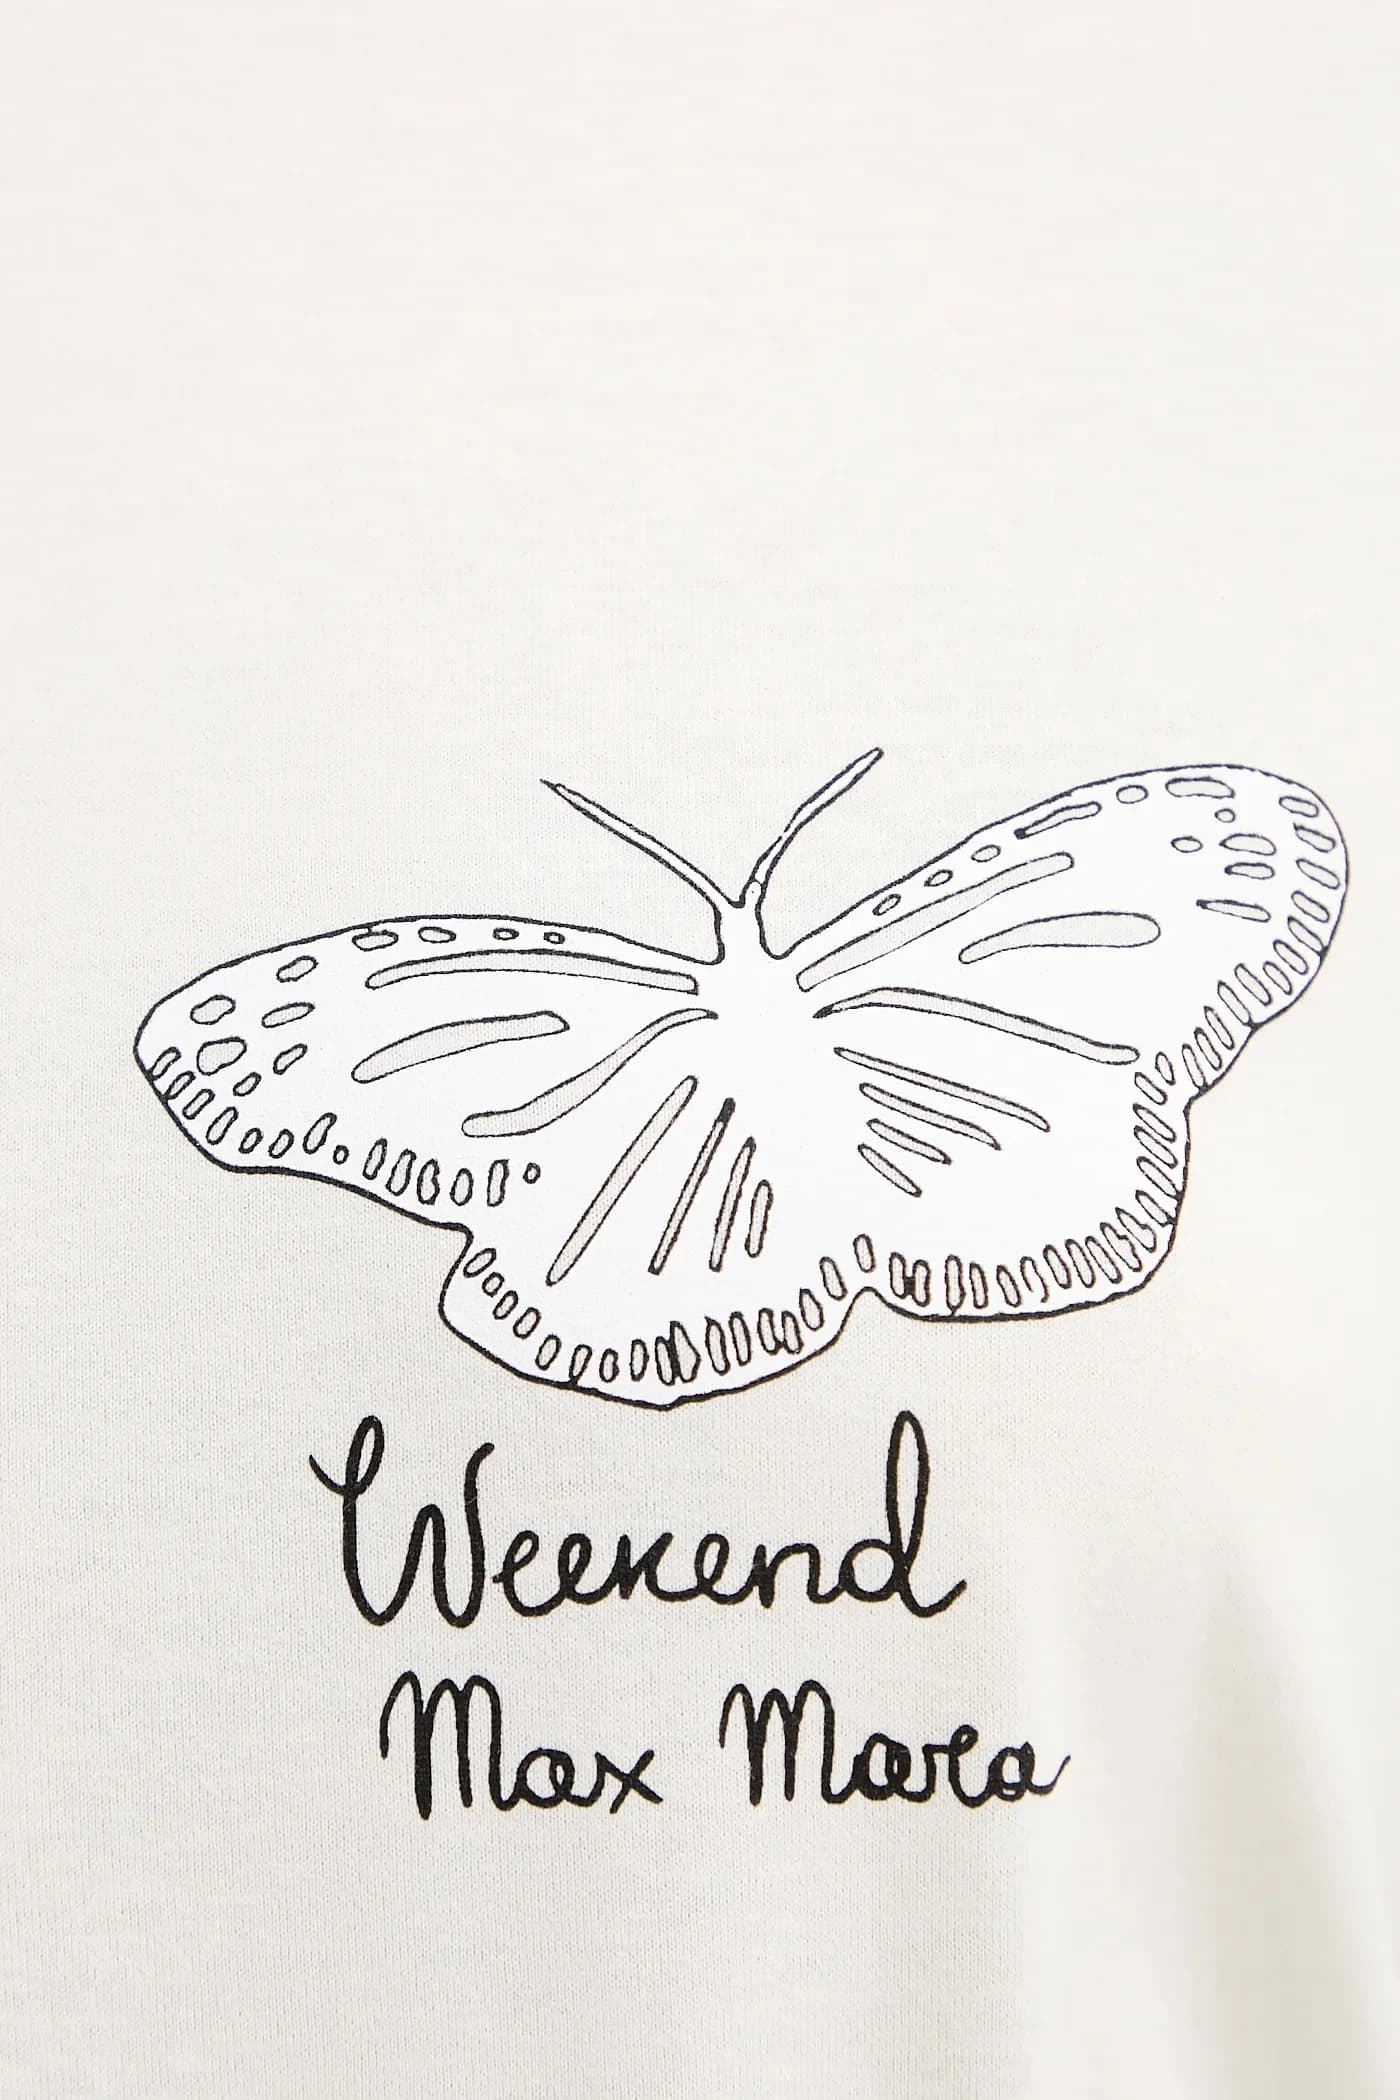 Weekend
Max Mara